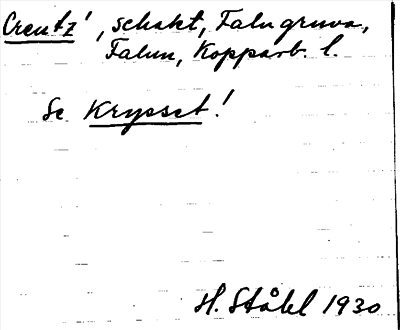 Creutz', schakt, Falu gruva,
Falun, Kopparb. l.
Se Krysset!
H. Ståhl 1930